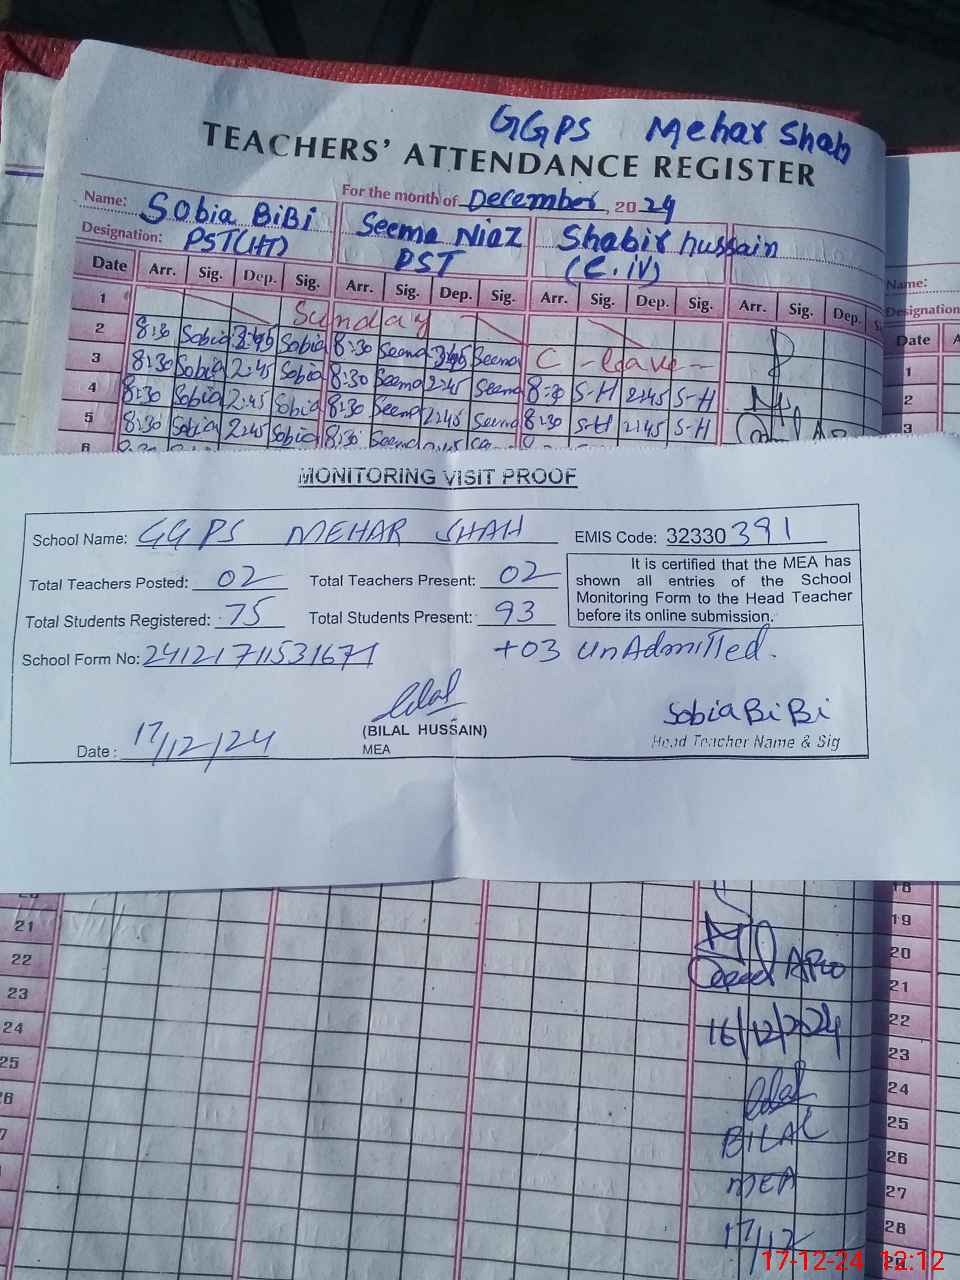 GGPS Mehar Shah
TEACHERS' ATTENDANCE REGISTER
For the month of December, 2024
Name: Sobia BiBi Seema Niaz Shabir hussain
Designation: PST(HT) PST (C.iV)
Date Arr. Sig. Dep. Sig. Arr. Sig. Dep. Sig. Arr. Sig. Dep. Sig. Arr. Sig. Dep.
1 Sunday
2 8:30 Sobia 2:45 Sobia 8:30 Seema 2:45 Seema C - leave -
3 8:30 Sobia 2:45 Sobia 8:30 Seema 2:45 Seema 8:30 S-H 2:45 S-H
4 8:30 Sobia 2:45 Sobia 8:30 Seema 2:45 Seema 8:30 S-H 2:45 S-H
5
6
Name:
Designation
Date A
1
2
3
MONITORING VISIT PROOF
School Name: GGPS MEHAR SHAH EMIS Code: 32330391
Total Teachers Posted: 02 Total Teachers Present: 02
Total Students Registered: 75 Total Students Present: 93
It is certified that the MEA has
shown all entries of the School
Monitoring Form to the Head Teacher
before its online submission.
School Form No: 24121711531671 +03 unAdmitted.
Date: 17/12/24
(BILAL HUSSAIN)
MEA
Sobia BiBi
Head Teacher Name & Sig
20
21
22
23
24
25
26
18
19
20
21
22
23
24
25
26
27
28
16/12/2024
BILAL
MEA
17/12
17-12-24 12:12